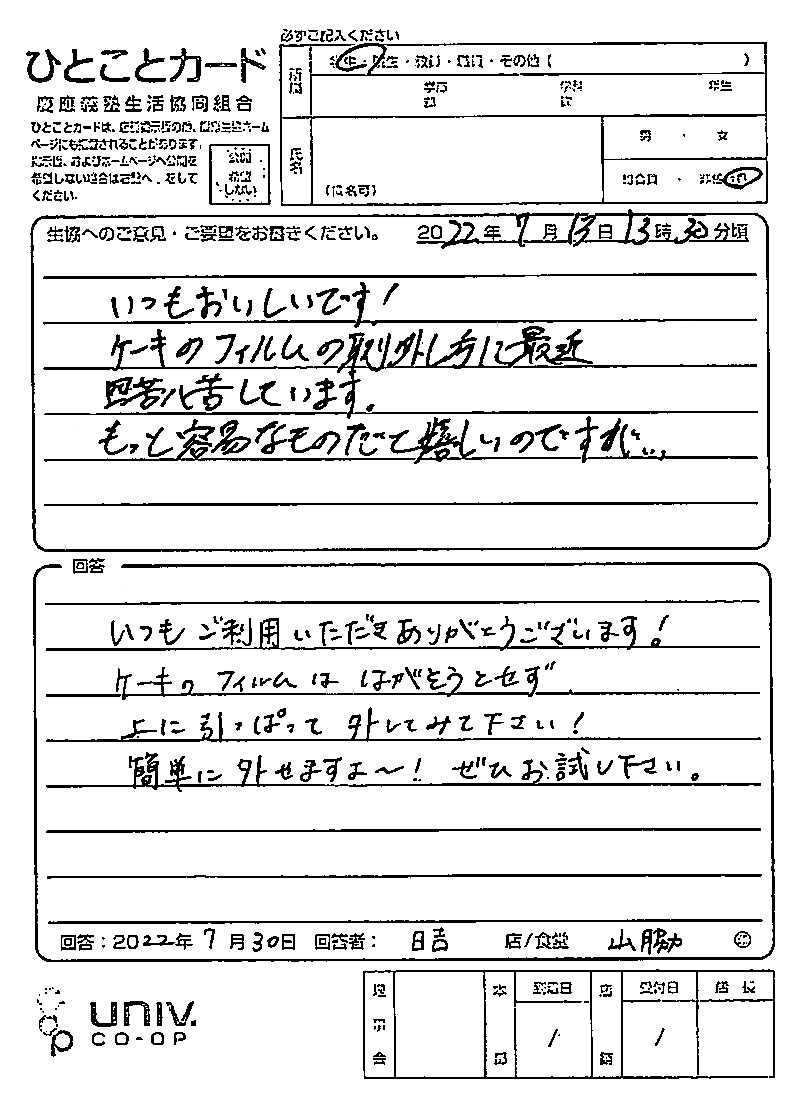 必ずご記入ください
ひとことカード
慶應義塾生活協同組合
ひとことカードは、店頭掲示版の他、慶應生協ホーム
ページにも掲載されることがあります。
掲示板、およびホームページへ公開を
希望しない場合は右記へ✓をして
ください。
公開
希望
しない
所属
学生・院生・教員・職員・その他 (      )
学部 学科 年生
氏名
(匿名可)
男 ・ 女
組合員 ・
生協へのご意見・ご要望をお書きください。 2022年 7月 13日 13時 30分頃
いつもおいしいです!
ケーキのフィルムの取り外し方に最近
四苦八苦しています。
もっと容易なものだと嬉しいのですが…。
回答
いつも ご利用 いただき ありがとうございます!
ケーキの フィルムは はがそうとせず
上に引っぱって 外してみて下さい!
簡単に 外せますよ〜! ぜひ お試し下さい。
回答:2022年 7月 30日 回答者: 日吉 店/食堂 山脇 ㊞
univ.
CO-OP
理事会
本部
到着日
/
店
受付日
/
店長